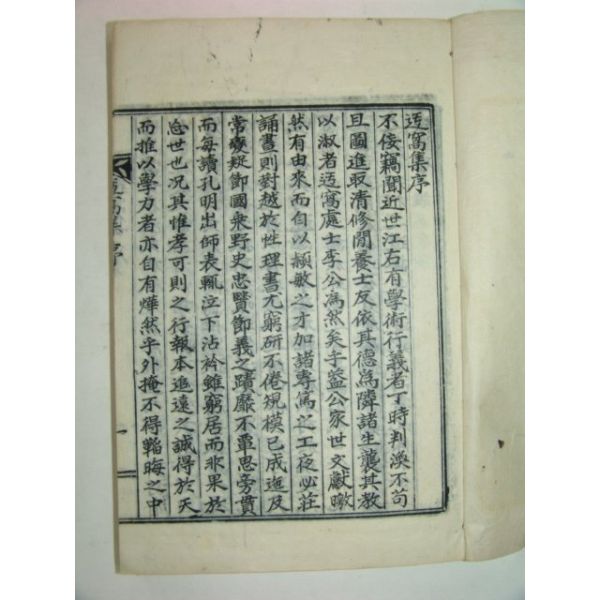 迃窩集序
不佞竊聞近世江右有學術行義者丁時判渙不苟
且圖進取清修閒養士友依其德爲隣諸生襲其教
以淑者迃窩處士李公爲然矣乎盖公家世文獻暾
然有由來而自以穎敏之才加諸專篤之工夜必莊
誦晝則對越於性理書尤窮研不倦規模已成迤及
常變疑節國乘野史忠賢節義之蹟靡不覃思旁貫
而每讀孔明出師表輒泣下沾衿雖窮居而非果於
忘世也况其惟孝可則之行報本追遠之誠得於天
而推以學力者亦自有燁然乎外掩不得韜晦之中
迃窩集 序
一